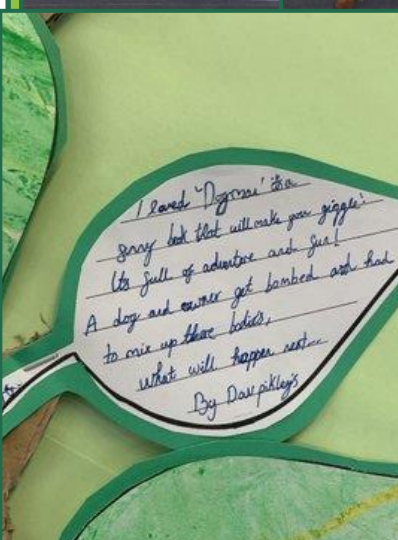 I loved 'Dogman' its a
funny book that will make you giggle!
Its full of adventure and fun!
A dog and owner get bombed and had
to mix up there bodies,
what will happen next...
By Dav pikley's